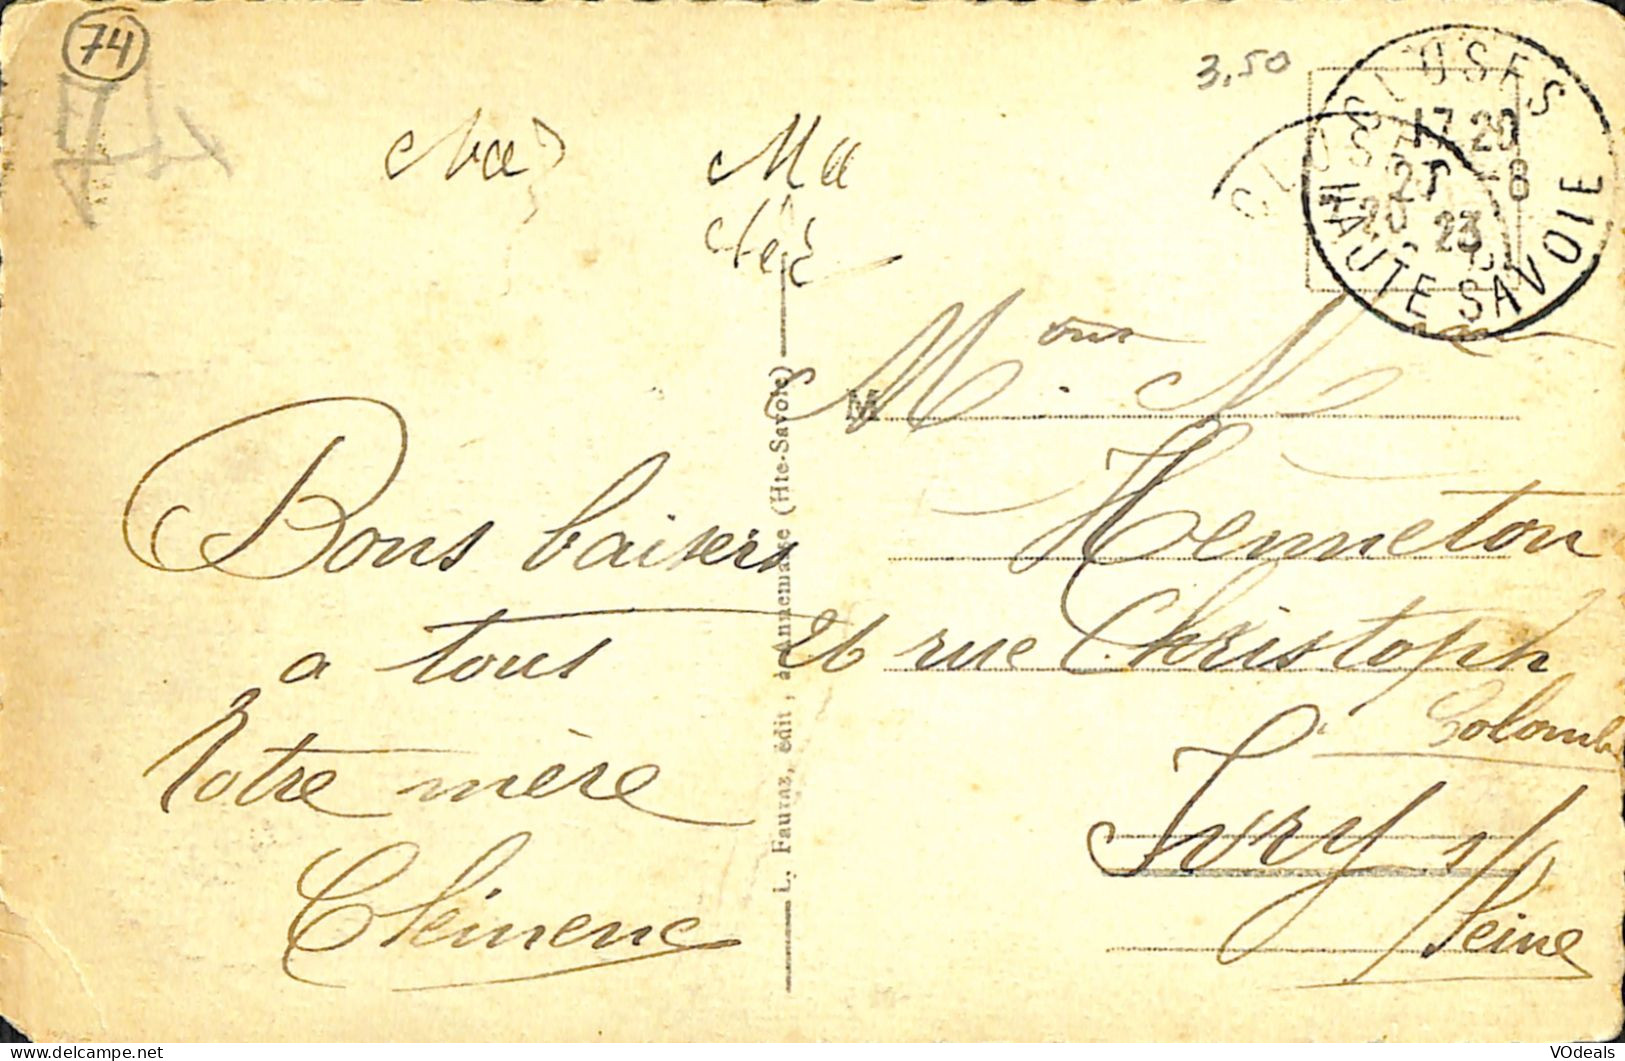 74
3,50
CLUSES
17 20
27 -8
23
HAUTE SAVOIE
CLUSES
Ma
Bons baisers
a tous
Votre mère
Clémence
L. Fauraz, édit., à Annemasse (Hte-Savoie)
M
Mons. N
Henneton
26 rue Christoph
Colomb
Ivry s/
Seine
© VOdeals